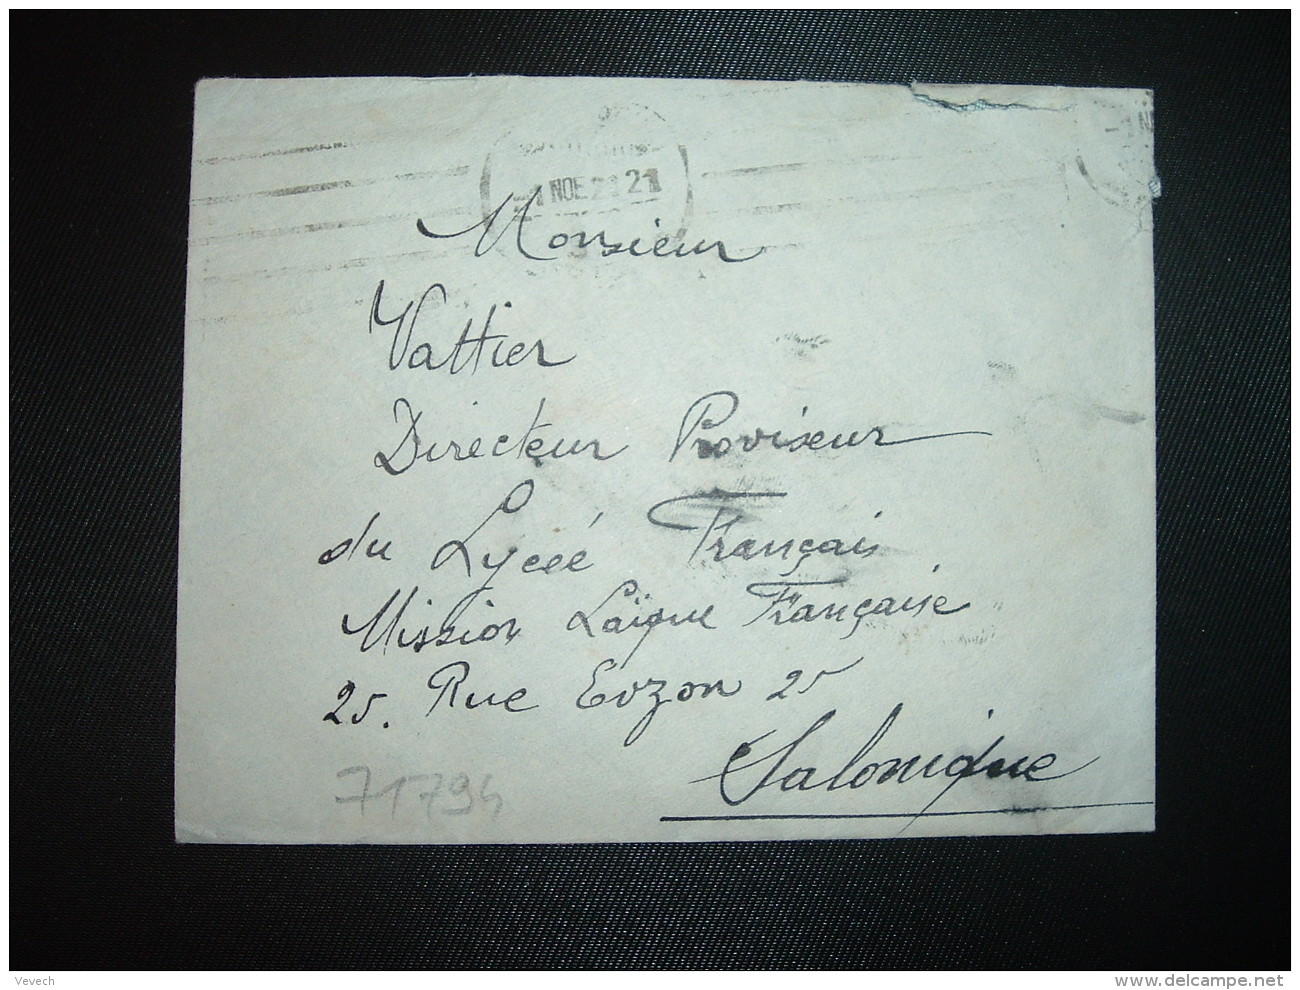 1 NOE 21
Monsieur
Vattier
Directeur Proviseur
du Lycéé Français
Mission Laïque Française
25. Rue Evzon 25
Salonique
71794
Vevech
www.delcampe.net